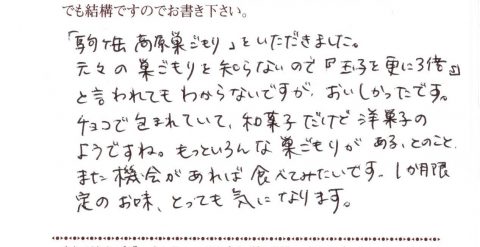 でも結構ですのでお書き下さい。
「駒ヶ岳 高原巣ごもり」をいただきました。
元々の巣ごもりを知らないので『玉子を更に3倍』
と言われてもわからないですが、おいしかったです。
チョコで包まれていて、和菓子だけど洋菓子の
ようですね。もっといろんな巣ごもりがある、とのこと、
また機会があれば食べてみたいです。1か月限
定のお味、とっても気になります。